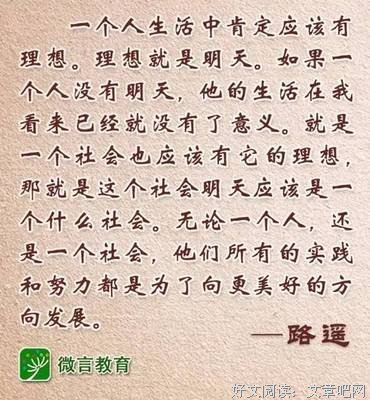 一个人生活中肯定应该有
理想。理想就是明天。如果一
个人没有明天，他的生活在我
看来已经就没有了意义。就是
一个社会也应该有它的理想，
那就是这个社会明天应该是一
个什么社会。无论一个人，还
是一个社会，他们所有的实践
和努力都是为了向更美好的方
向发展。
—路遥
微言教育
好文阅读：文章吧网